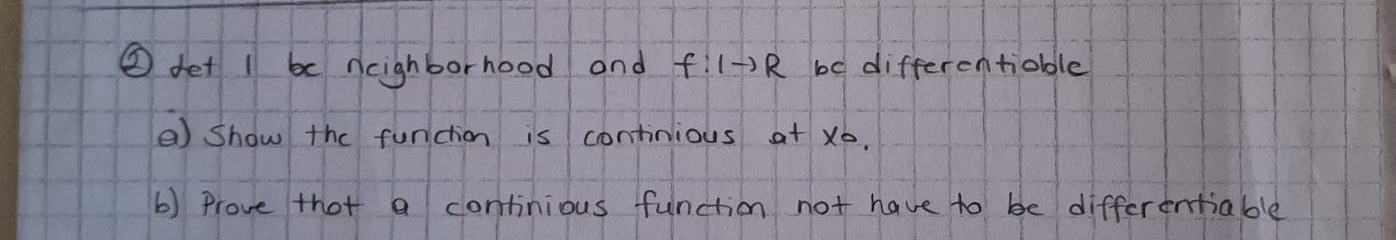 ② Let I be neighborhood and f: I→R be differentiable
a) Show the function is continious at x₀.
b) Prove that a continious function not have to be differentiable